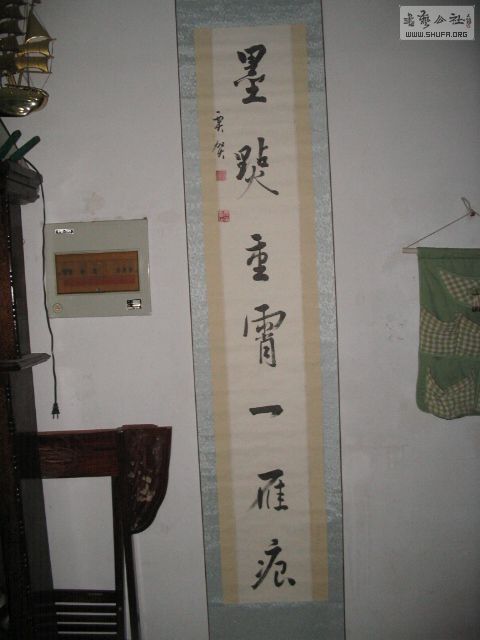 墨點重霄一雁痕
書藝公社
WWW.SHUFA.ORG